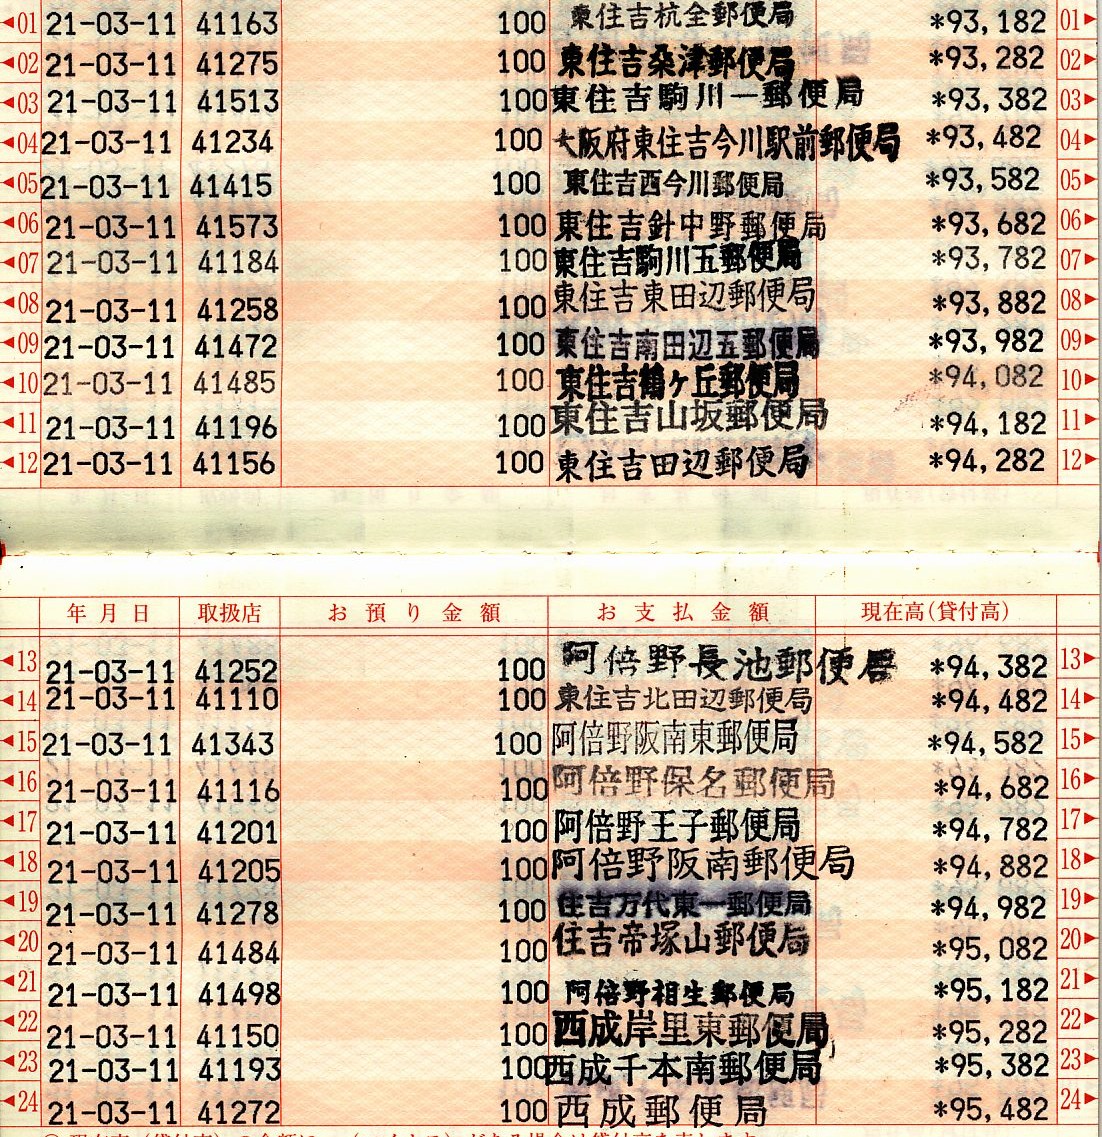 ◀01 21-03-11 41163 100 東住吉杭全郵便局 *93,182 01▶
◀02 21-03-11 41275 100 東住吉桑津郵便局 *93,282 02▶
◀03 21-03-11 41513 100 東住吉駒川一郵便局 *93,382 03▶
◀04 21-03-11 41234 100 大阪府東住吉今川駅前郵便局 *93,482 04▶
◀05 21-03-11 41415 100 東住吉西今川郵便局 *93,582 05▶
◀06 21-03-11 41573 100 東住吉針中野郵便局 *93,682 06▶
◀07 21-03-11 41184 100 東住吉駒川五郵便局 *93,782 07▶
◀08 21-03-11 41258 100 東住吉東田辺郵便局 *93,882 08▶
◀09 21-03-11 41472 100 東住吉南田辺五郵便局 *93,982 09▶
◀10 21-03-11 41485 100 東住吉鶴ヶ丘郵便局 *94,082 10▶
◀11 21-03-11 41196 100 東住吉山坂郵便局 *94,182 11▶
◀12 21-03-11 41156 100 東住吉田辺郵便局 *94,282 12▶
年月日 取扱店 お預り金額 お支払金額 現在高(貸付高)
◀13 21-03-11 41252 100 阿倍野長池郵便局 *94,382 13▶
◀14 21-03-11 41110 100 東住吉北田辺郵便局 *94,482 14▶
◀15 21-03-11 41343 100 阿倍野阪南東郵便局 *94,582 15▶
◀16 21-03-11 41116 100 阿倍野保名郵便局 *94,682 16▶
◀17 21-03-11 41201 100 阿倍野王子郵便局 *94,782 17▶
◀18 21-03-11 41205 100 阿倍野阪南郵便局 *94,882 18▶
◀19 21-03-11 41278 100 住吉万代東一郵便局 *94,982 19▶
◀20 21-03-11 41484 100 住吉帝塚山郵便局 *95,082 20▶
◀21 21-03-11 41498 100 阿倍野相生郵便局 *95,182 21▶
◀22 21-03-11 41150 100 西成岸里東郵便局 *95,282 22▶
◀23 21-03-11 41193 100 西成千本南郵便局 *95,382 23▶
◀24 21-03-11 41272 100 西成郵便局 *95,482 24▶